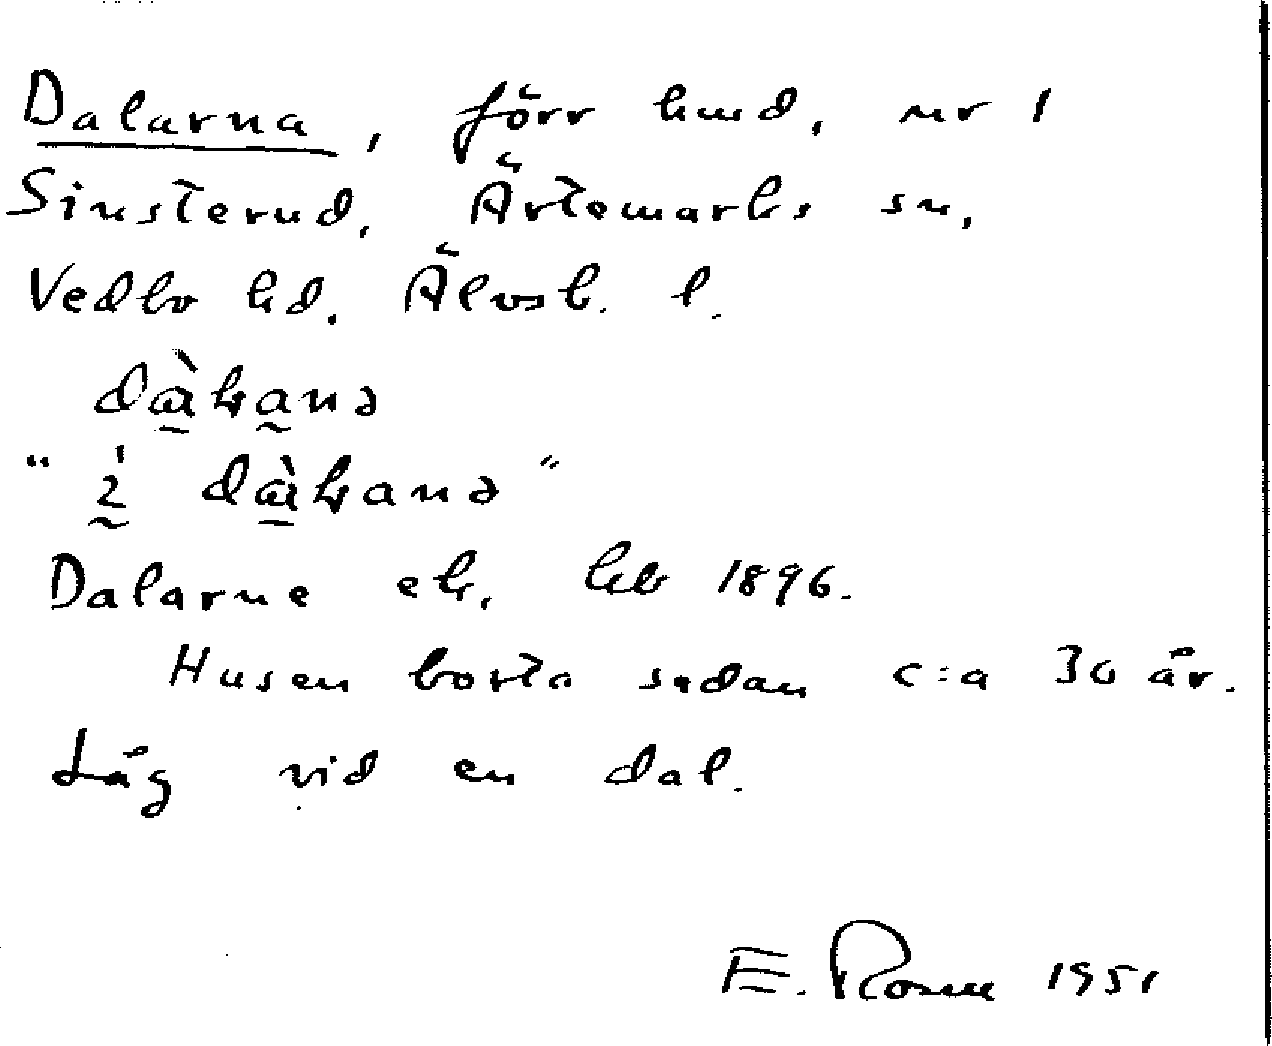 Dalarna, förr lund, nr 1
Sinsterud, Ärtemarks sn,
Vedbo hd. Älvsb. l.
Dalarne ek. kb 1896.
Husen borta sedan c:a 30 år.
Låg vid en dal.
E. Rosell 1951